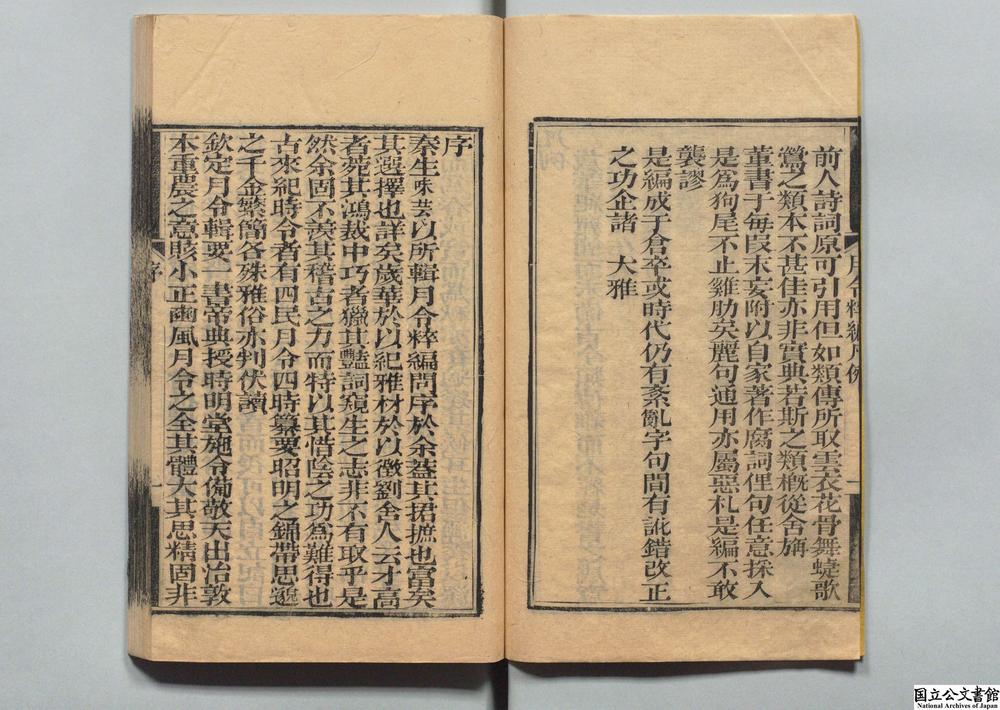 前人詩詞原可引用但如類傳所取雲衣花骨舞蝶歌
鶯之類本不甚佳亦非實典若斯之類概從舍旃
董書于每叚末妄附以自家著作腐詞俚句任意採入
是為狗尾不止雞肋矣麗句通用亦屬惡札是編不敢
襲謬
是編成于倉卒或時代仍有紊亂字句間有訛錯改正
之功企諸 大雅
月令粹編凡例
一
序
秦生味芸以所輯月令粹編問序於余蓋其捃摭也富矣
其選擇也詳矣歲華於以紀雅材於以徵劉舍人云才高
者菀其鴻裁中巧者獵其豔詞窺生之志非不有取乎是
然余固不羨其稽古之力而特以其惜陰之功為難得也
古來紀時令者有四民月令四時纂要昭明之錦帶思邈
之千金繁簡各殊雅俗亦判伏讀
欽定月令輯要一書帝典授時明堂施令備敬天出治敦
本重農之意賅小正豳風月令之全其體大其思精固非
序
一
国立公文書館
National Archives of Japan